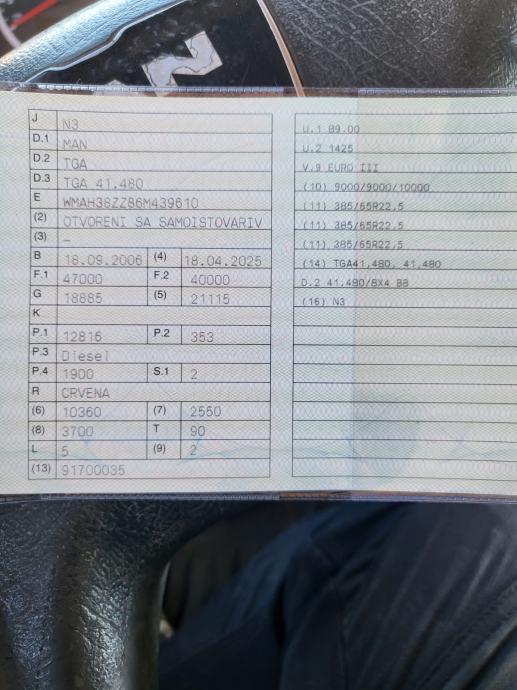 J N3
D.1 MAN
D.2 TGA
D.3 TGA 41.480
E WMAH38ZZ86M439610
(2) OTVORENI SA SAMOISTOVARIV
(3) –
B 18.09.2006 (4) 18.04.2025
F.1 47000 F.2 40000
G 18885 (5) 21115
K
P.1 12816 P.2 353
P.3 Diesel
P.4 1900 S.1 2
R CRVENA
(6) 10360 (7) 2550
(8) 3700 T 90
L 5 (9) 2
(13) 91700035
U.1 89.00
U.2 1425
V.9 EURO III
(10) 9000/9000/10000
(11) 385/65R22,5
(11) 385/65R22,5
(11) 385/65R22,5
(14) TGA41,480, 41,480
D.2 41.480/8X4 BB
(16) N3